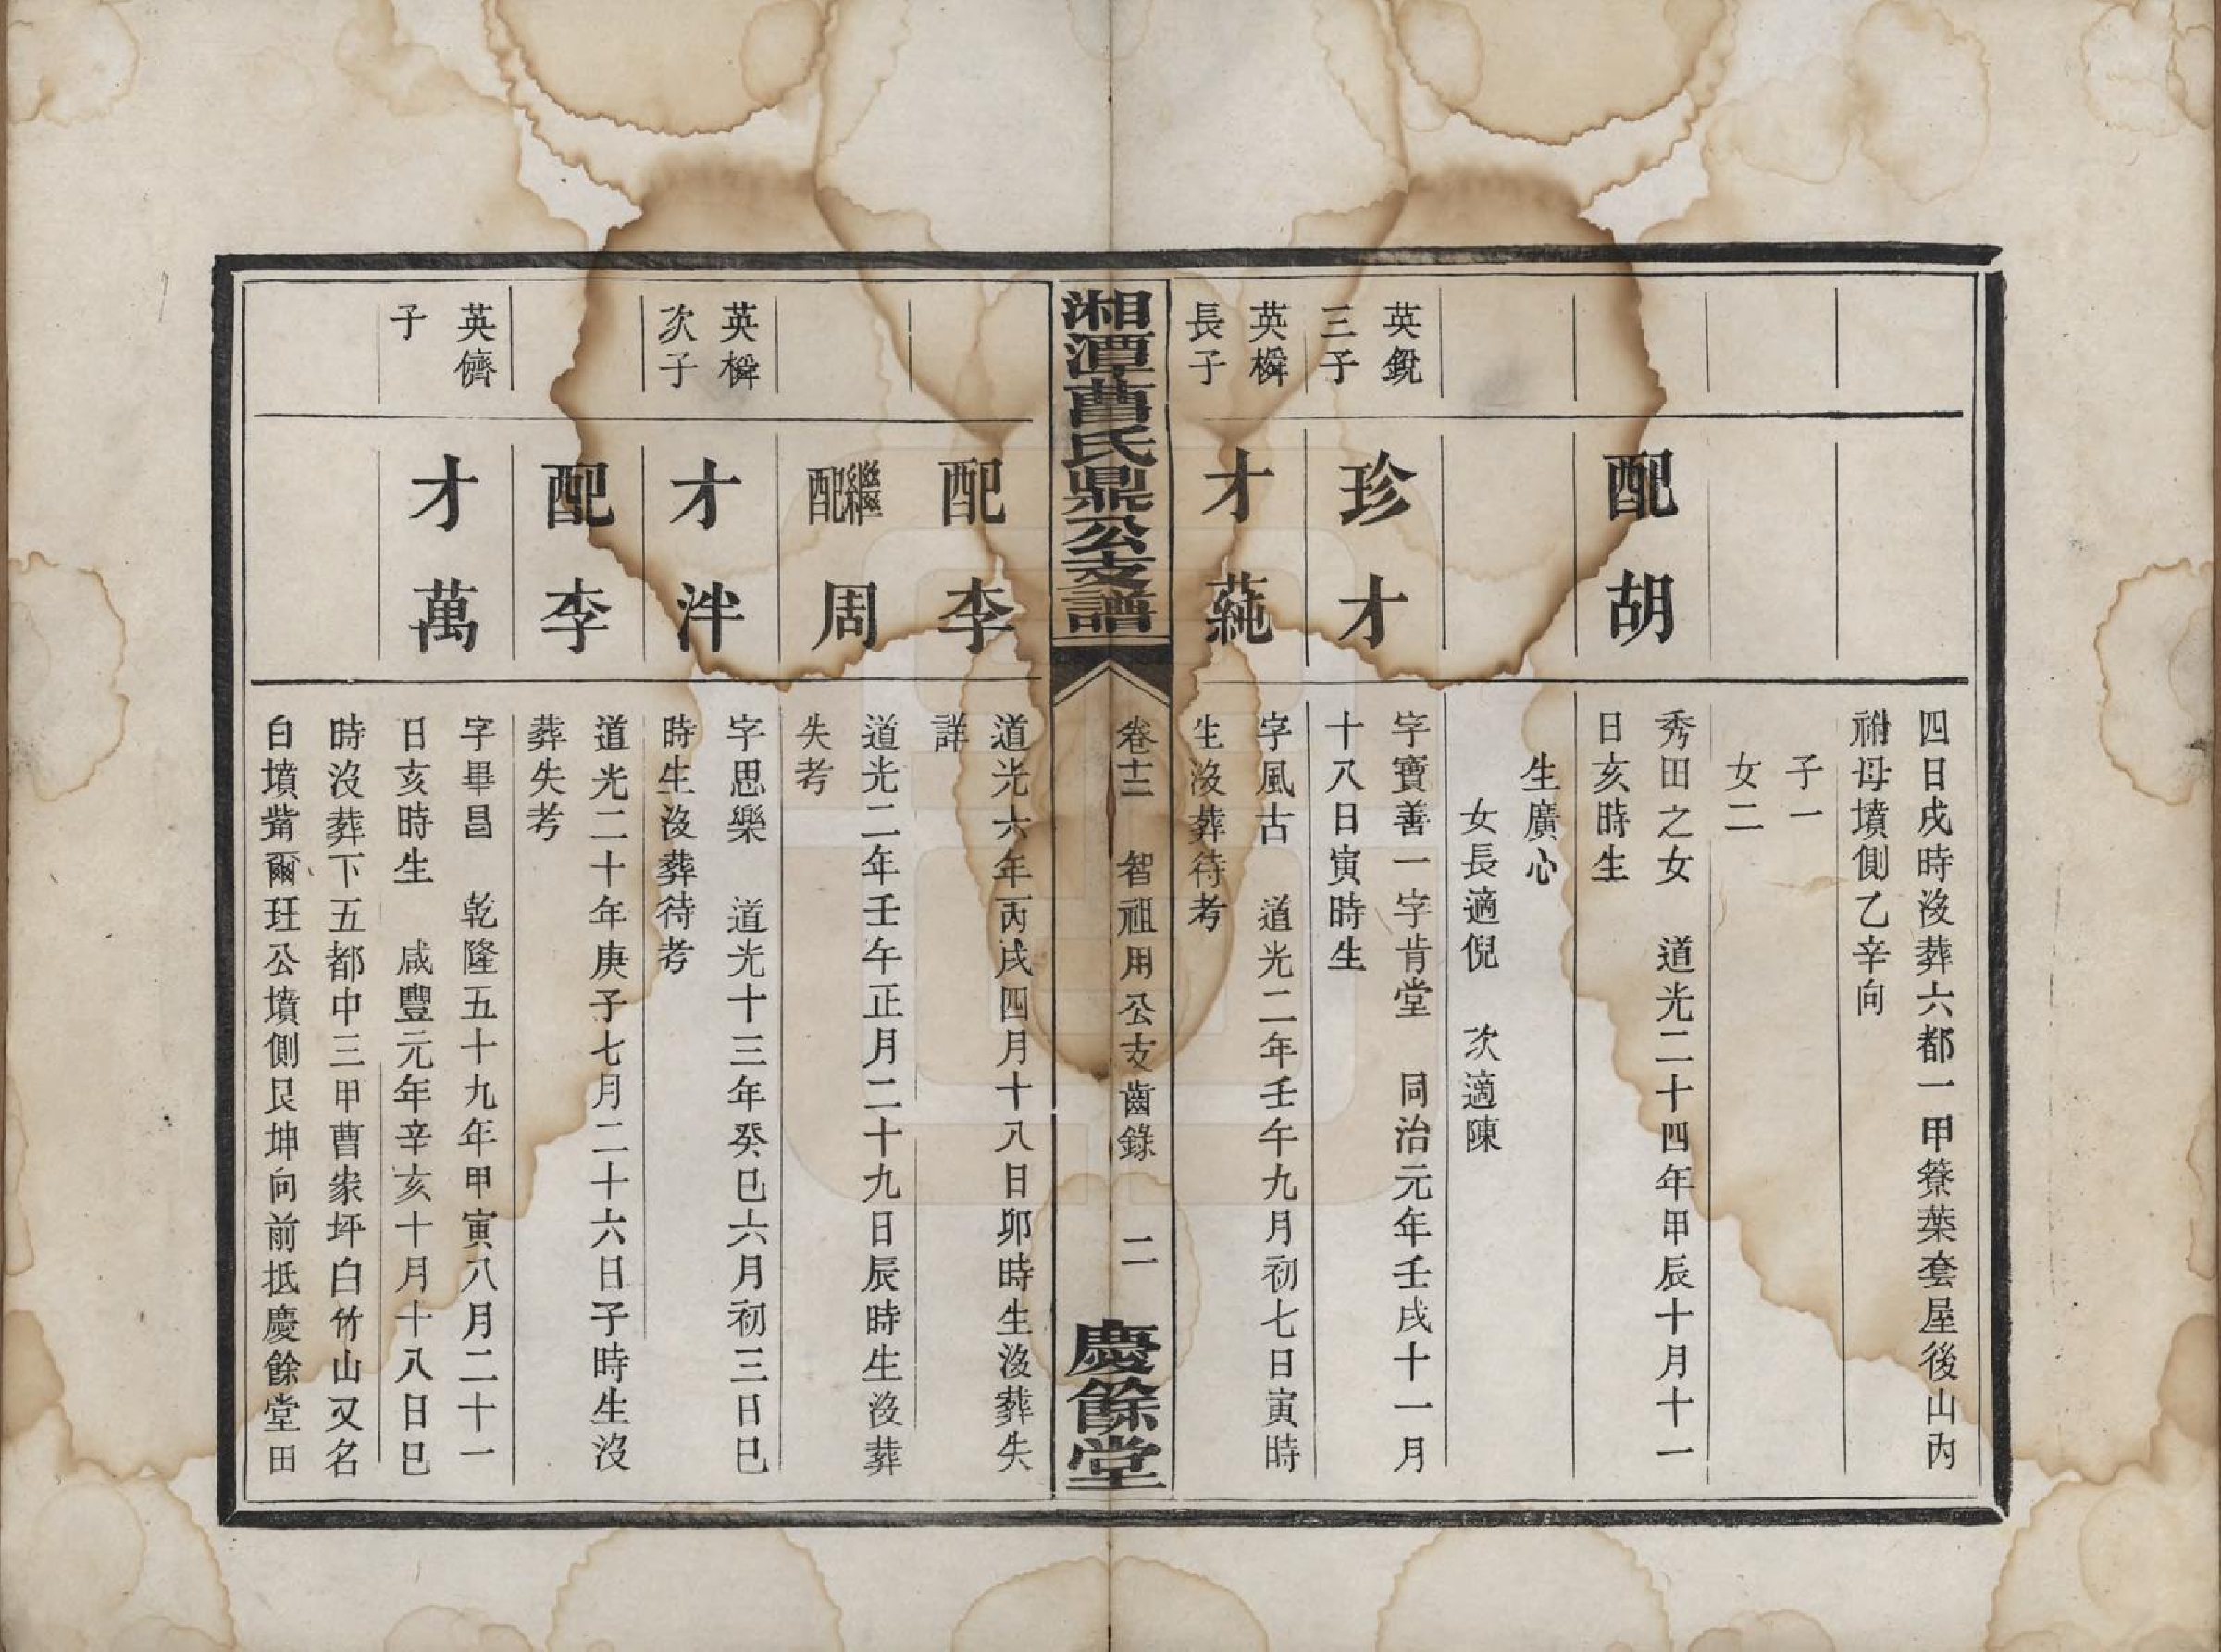 四日戌時沒葬六都一甲藔葉套屋後山內
祔母墳側乙辛向
子一
女二
配胡
秀田之女　道光二十四年甲辰十月十一
日亥時生
生廣心
女長適倪　次適陳
英銳
三子
珍才
字寶善一字肯堂　同治元年壬戌十一月
十八日寅時生
英橓
長子
才蒓
字風古　道光二年壬午九月初七日寅時
生沒葬待考
湘潭曹氏鼎公支譜
卷十三　智祖用公支齒錄　二
慶餘堂
配李
道光六年丙戌四月十八日卯時生沒葬失
詳
繼配周
道光二年壬午正月二十九日辰時生沒葬
失考
英橓
次子
才泮
字思樂　道光十三年癸巳六月初三日巳
時生沒葬待考
配李
道光二十年庚子七月二十六日子時生沒
葬失考
英儕
子
才萬
字畢昌　乾隆五十九年甲寅八月二十一
日亥時生　咸豐元年辛亥十月十八日巳
時沒葬下五都中三甲曹家坪白竹山又名
白墳觜爾玨公墳側艮坤向前抵慶餘堂田